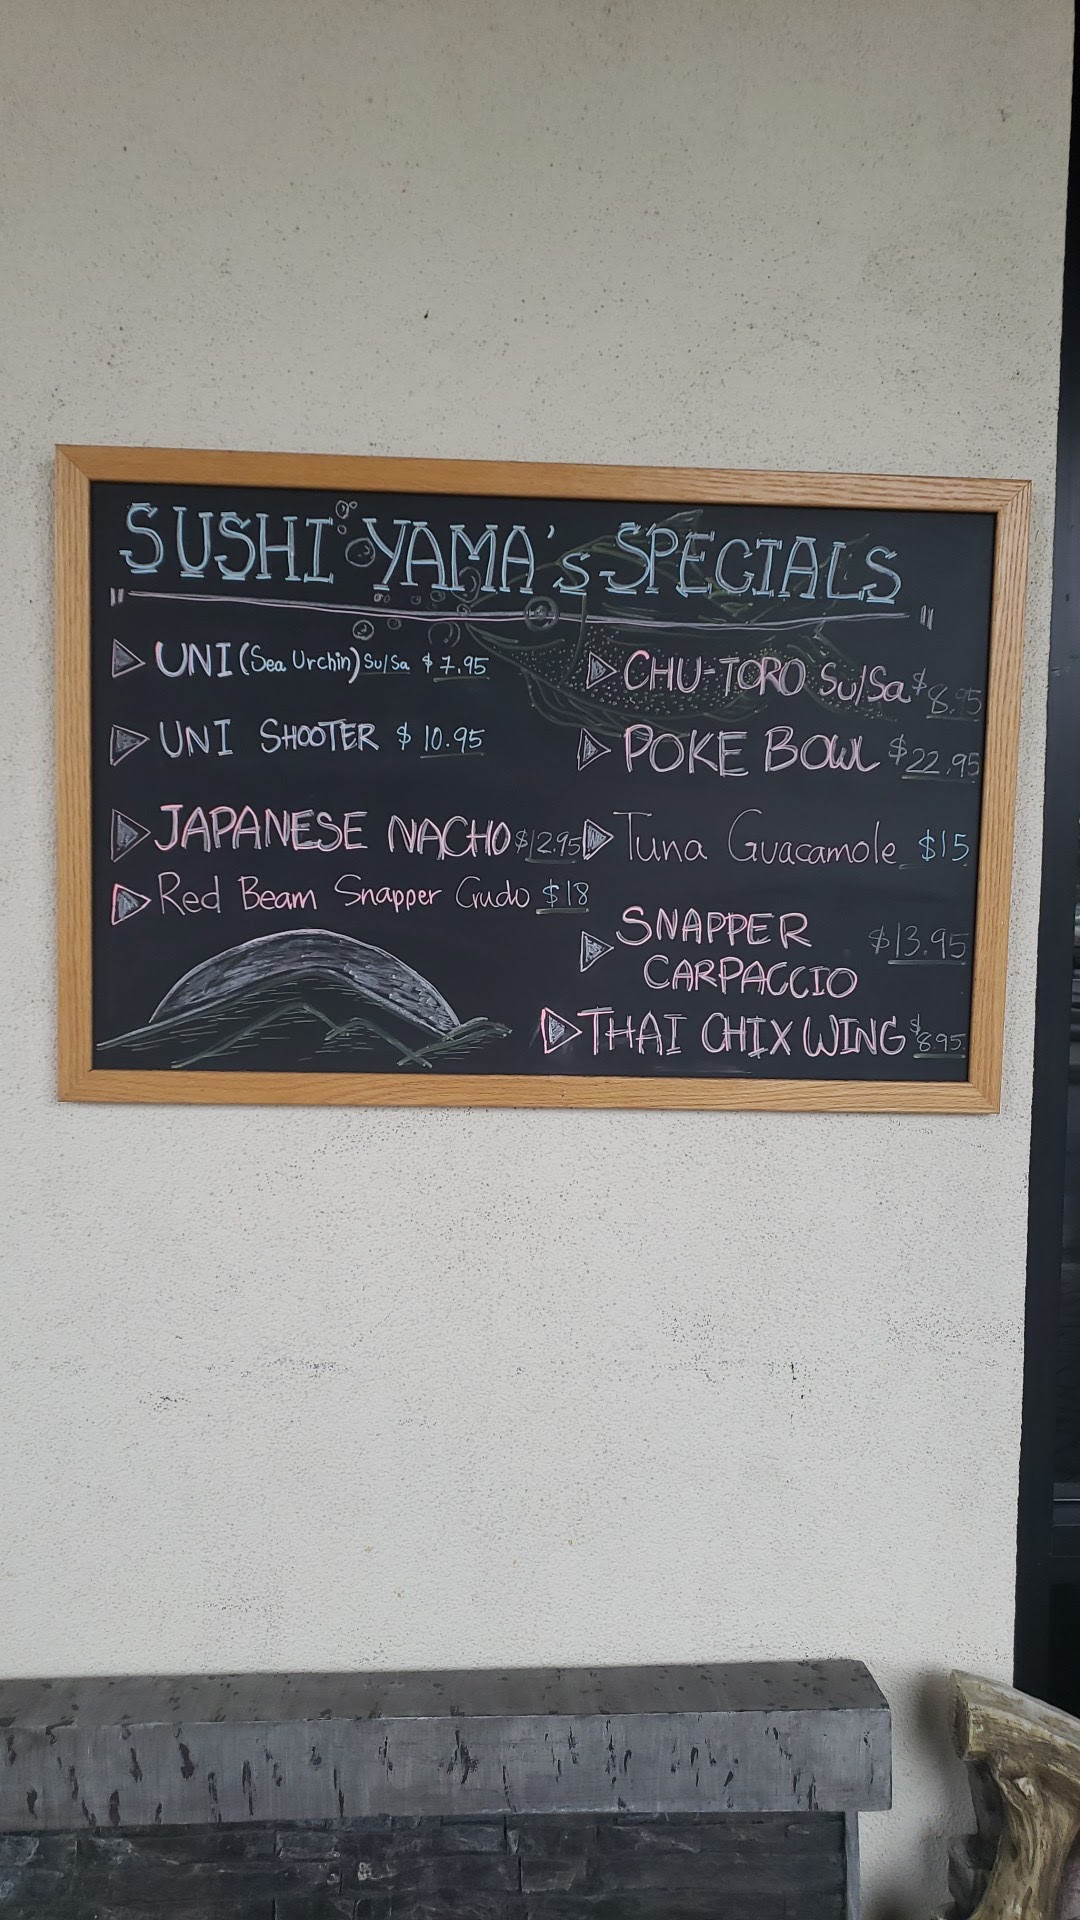 SUSHI YAMA's SPECIALS
UNI (Sea Urchin) Su/Sa $7.95
UNI SHOOTER $10.95
JAPANESE NACHO $12.95
Red Beam Snapper Crudo $18
CHU-TORO Su/Sa $8.95
POKE BOWL $22.95
Tuna Guacamole $15
SNAPPER $13.95
CARPACCIO
THAI CHIX WING $8.95